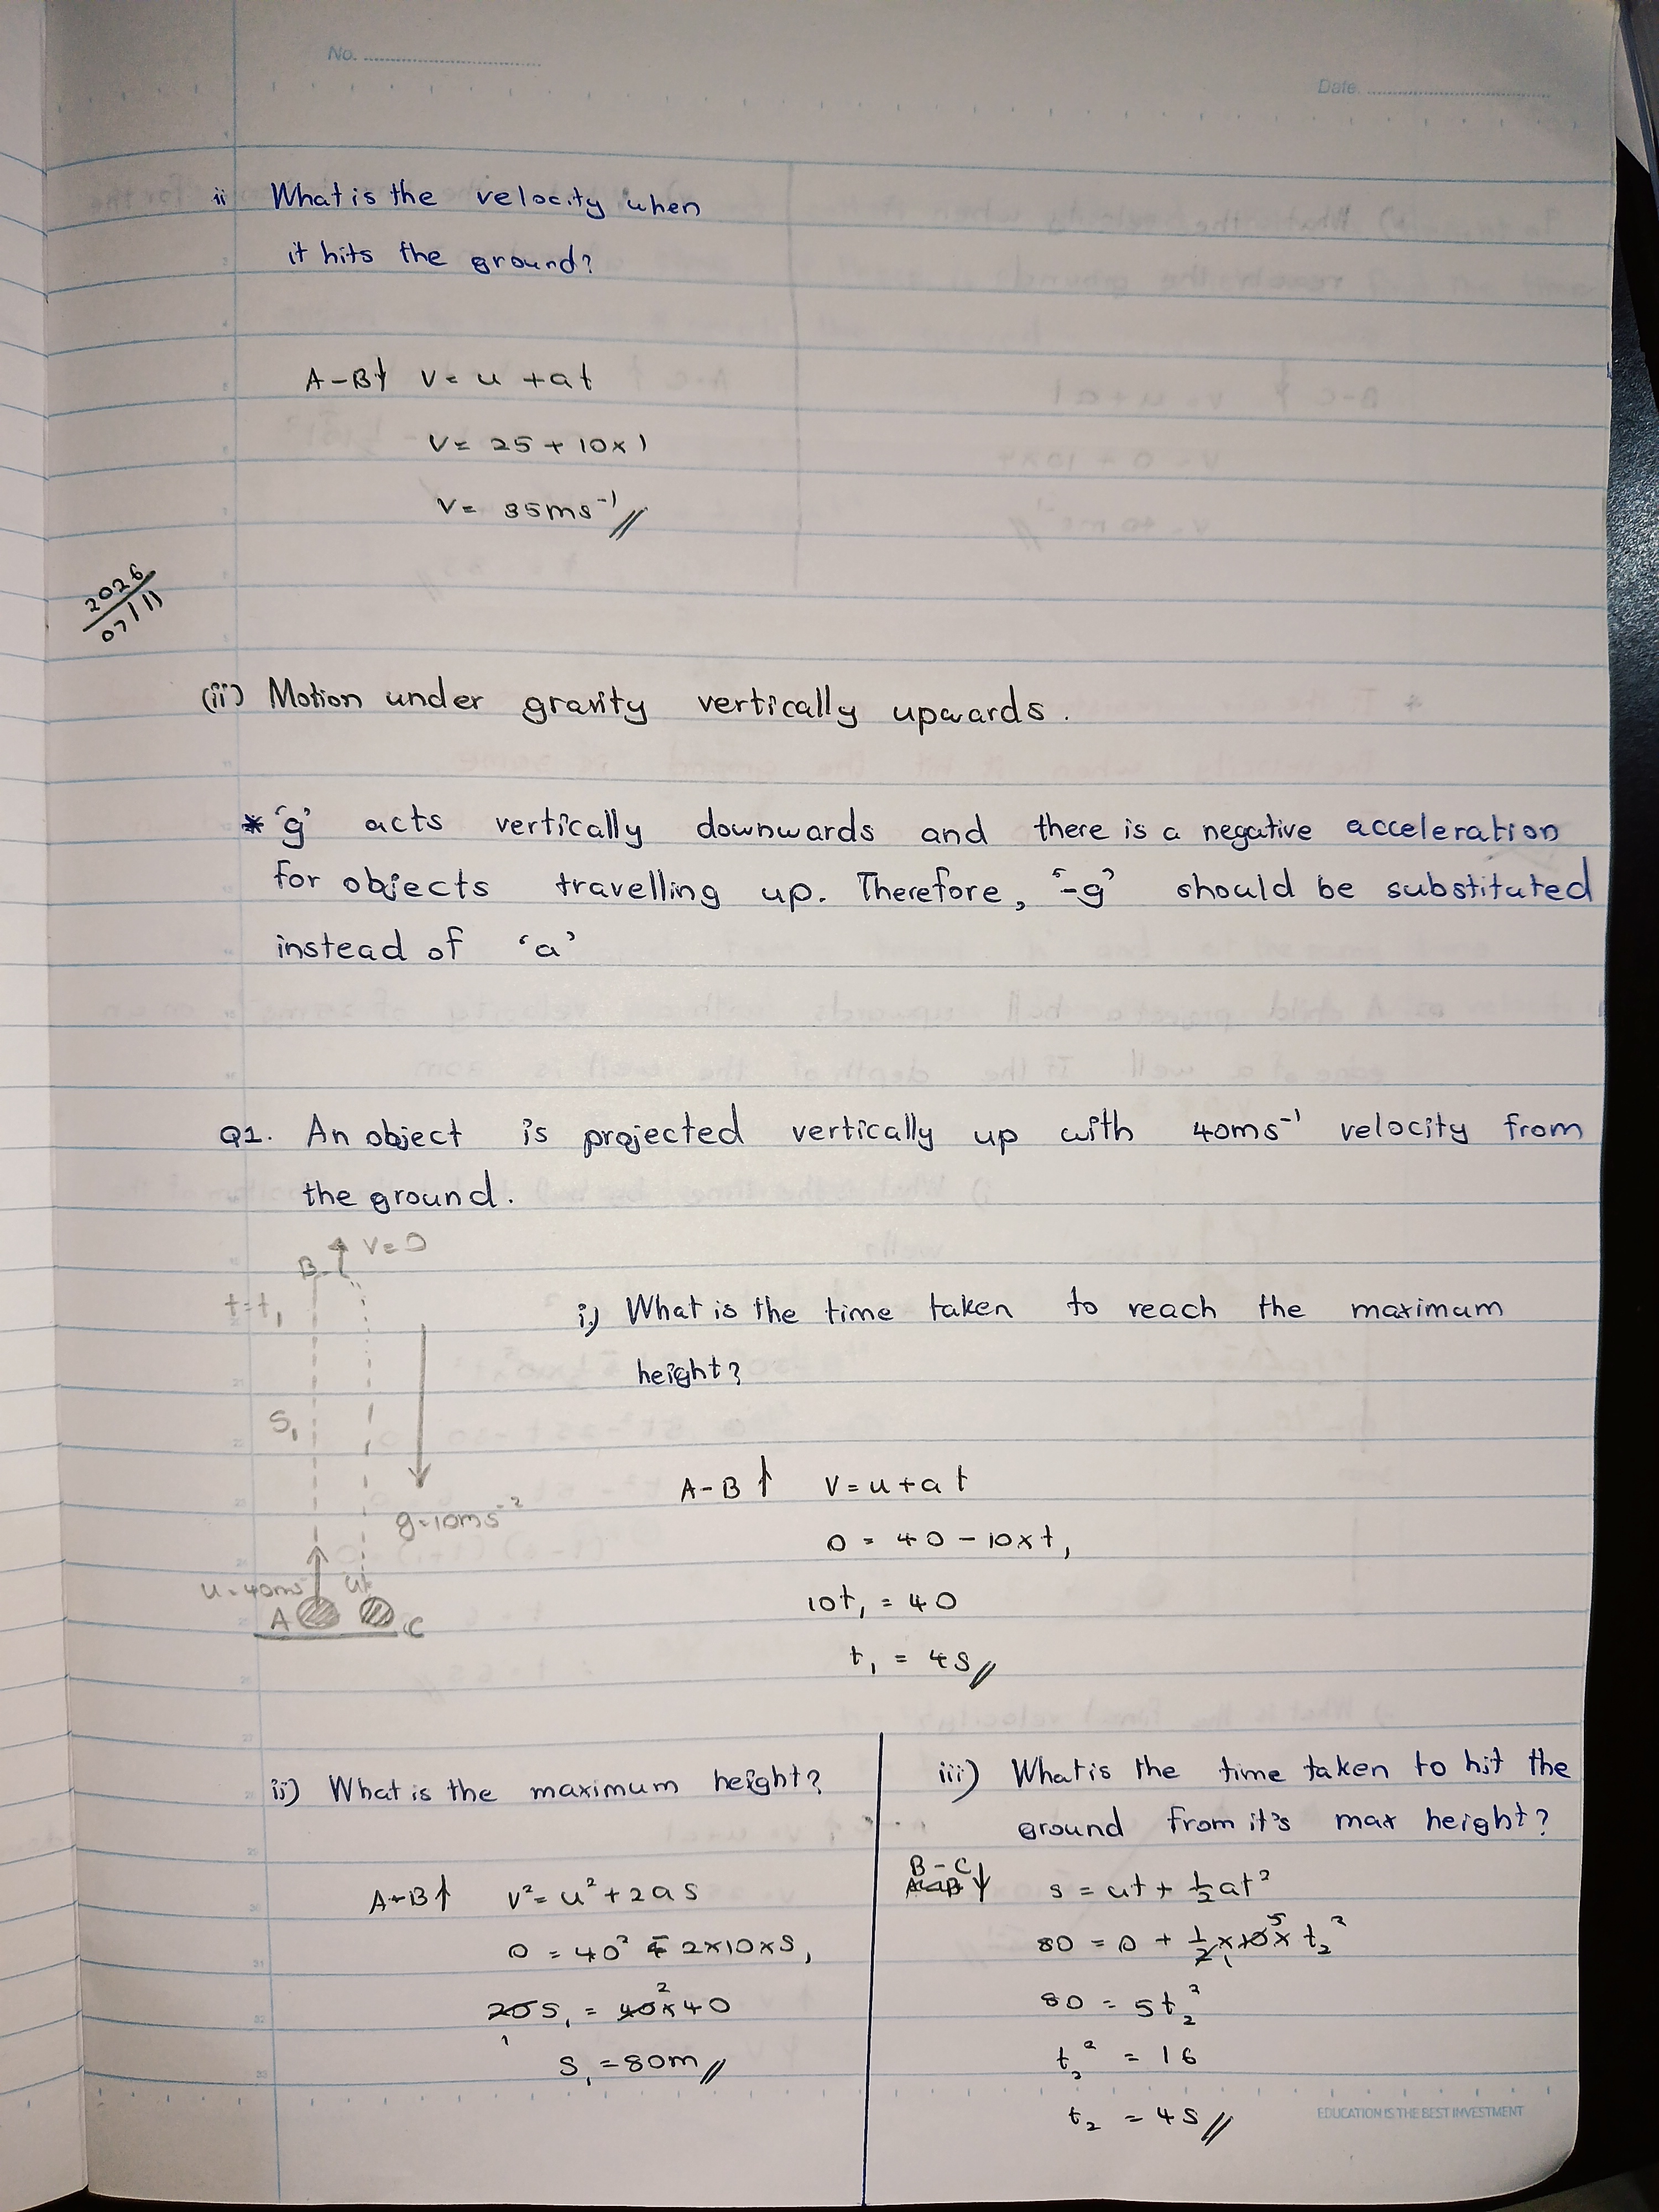 No.
Date.
ii What is the velocity when
it hits the ground?
A-B↓ v = u + at
v = 25 + 10 × 1
v = 35ms⁻¹//
2026
07/11
(ii) Motion under gravity vertically upwards.
* 'g' acts vertically downwards and there is a negative acceleration
for objects travelling up. Therefore, '-g' should be substituted
instead of 'a'
Q1. An object is projected vertically up with 40ms⁻¹ velocity from
the ground.
B v=0
t=t₁
i) What is the time taken to reach the maximum
height?
S₁
A-B ↑ v = u + at
g=10ms⁻²
0 = 40 - 10×t₁
u=40ms⁻¹
A C
10t₁ = 40
t₁ = 4s//
ii) What is the maximum height?
A-B↑ v² = u² + 2as
0 = 40² - 2×10×S₁
20S₁ = 40×40
1 2
S₁ = 80m//
iii) What is the time taken to hit the
ground from it's max height?
B-C↓ s = ut + ½at²
80 = 0 + ½×10×t₂²
80 = 5t₂²
t₂² = 16
t₂ = 4s//
EDUCATION IS THE BEST INVESTMENT